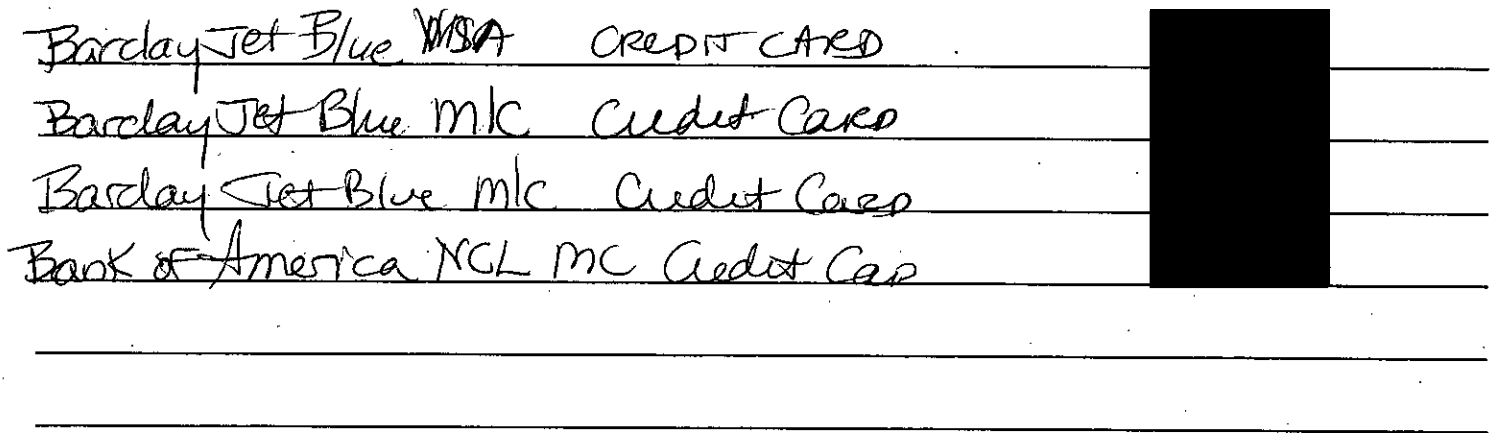 Barclay Jet Blue VISA CREDIT CARD
Barclay Jet Blue M/C Credit Card
Barclay Jet Blue M/C Credit Card
Bank of America NCL MC Credit Card